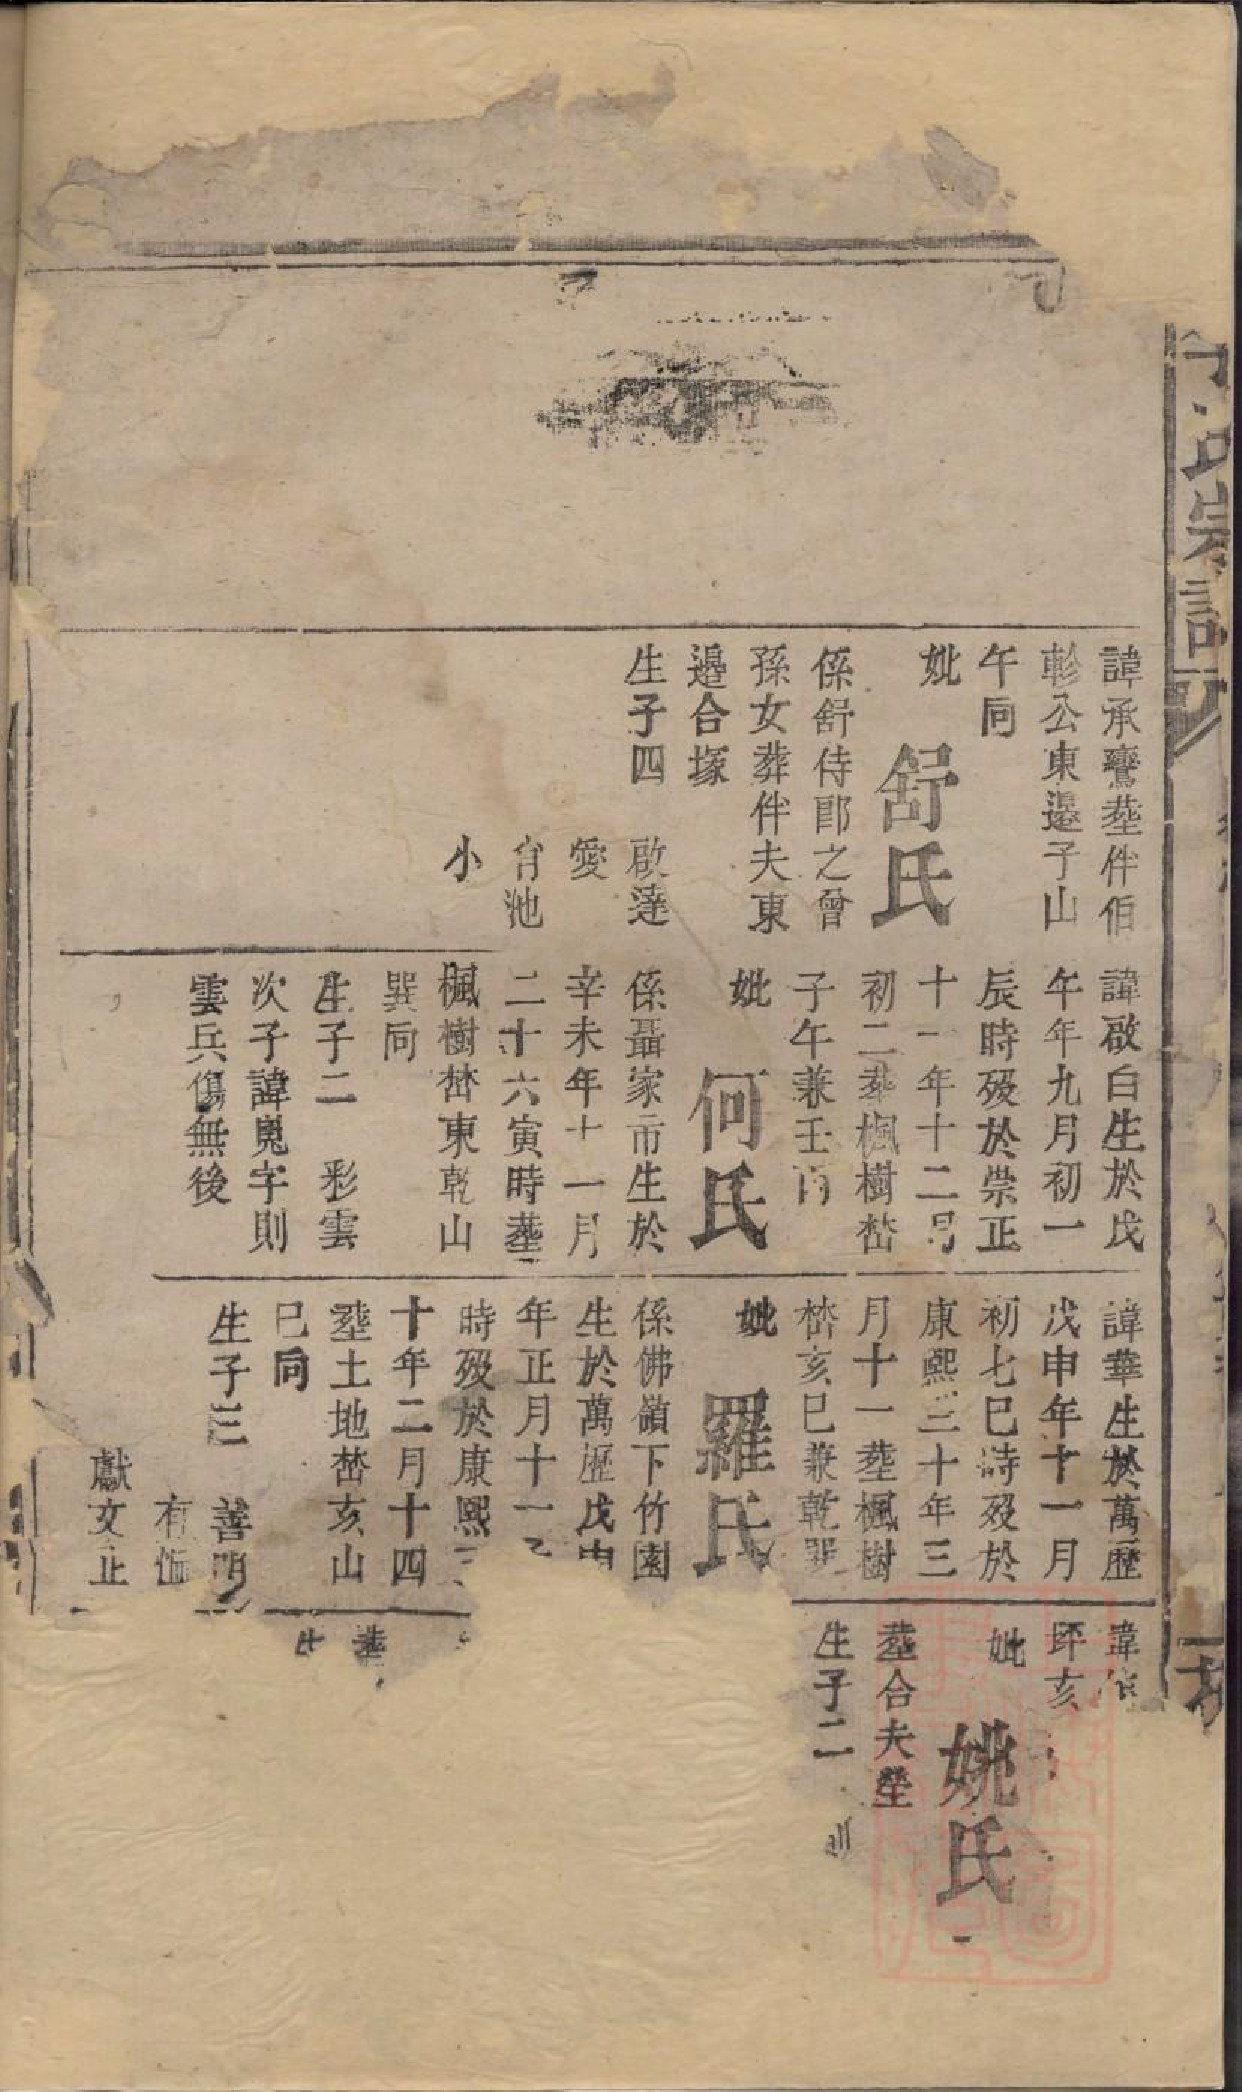 氏宗譜
諱承鸞塟伴伯
軫公東邊子山
午同
妣
舒氏
係舒侍郎之曾
孫女葬伴夫東
邉合塚
生子四 啟達
愛
池
小
諱啟白生於戊
午年九月初一
辰時歿於崇正
十一年十二月
初二葬楓樹嵆
子午兼壬丙
妣
何氏
係聶家市生於
辛未年十一月
二十六寅時塟
楓樹嵆東乾山
巽同
生子二 彩雲
次子諱嵬字則
雲兵傷無後
諱華生於萬歷
戊申年十一月
初七巳時歿於
康熙三十年三
月十一塟楓樹
嵆亥巳兼乾巽
妣
羅氏
係佛嶺下竹園
生於萬歷戊申
年正月十一
時歿於康熙
十年二月十四
塟土地嵆亥山
巳同
生子三 善
有恒
獻文止
諱
坪亥
妣
姚氏
塟合夫塋
生子二
塟